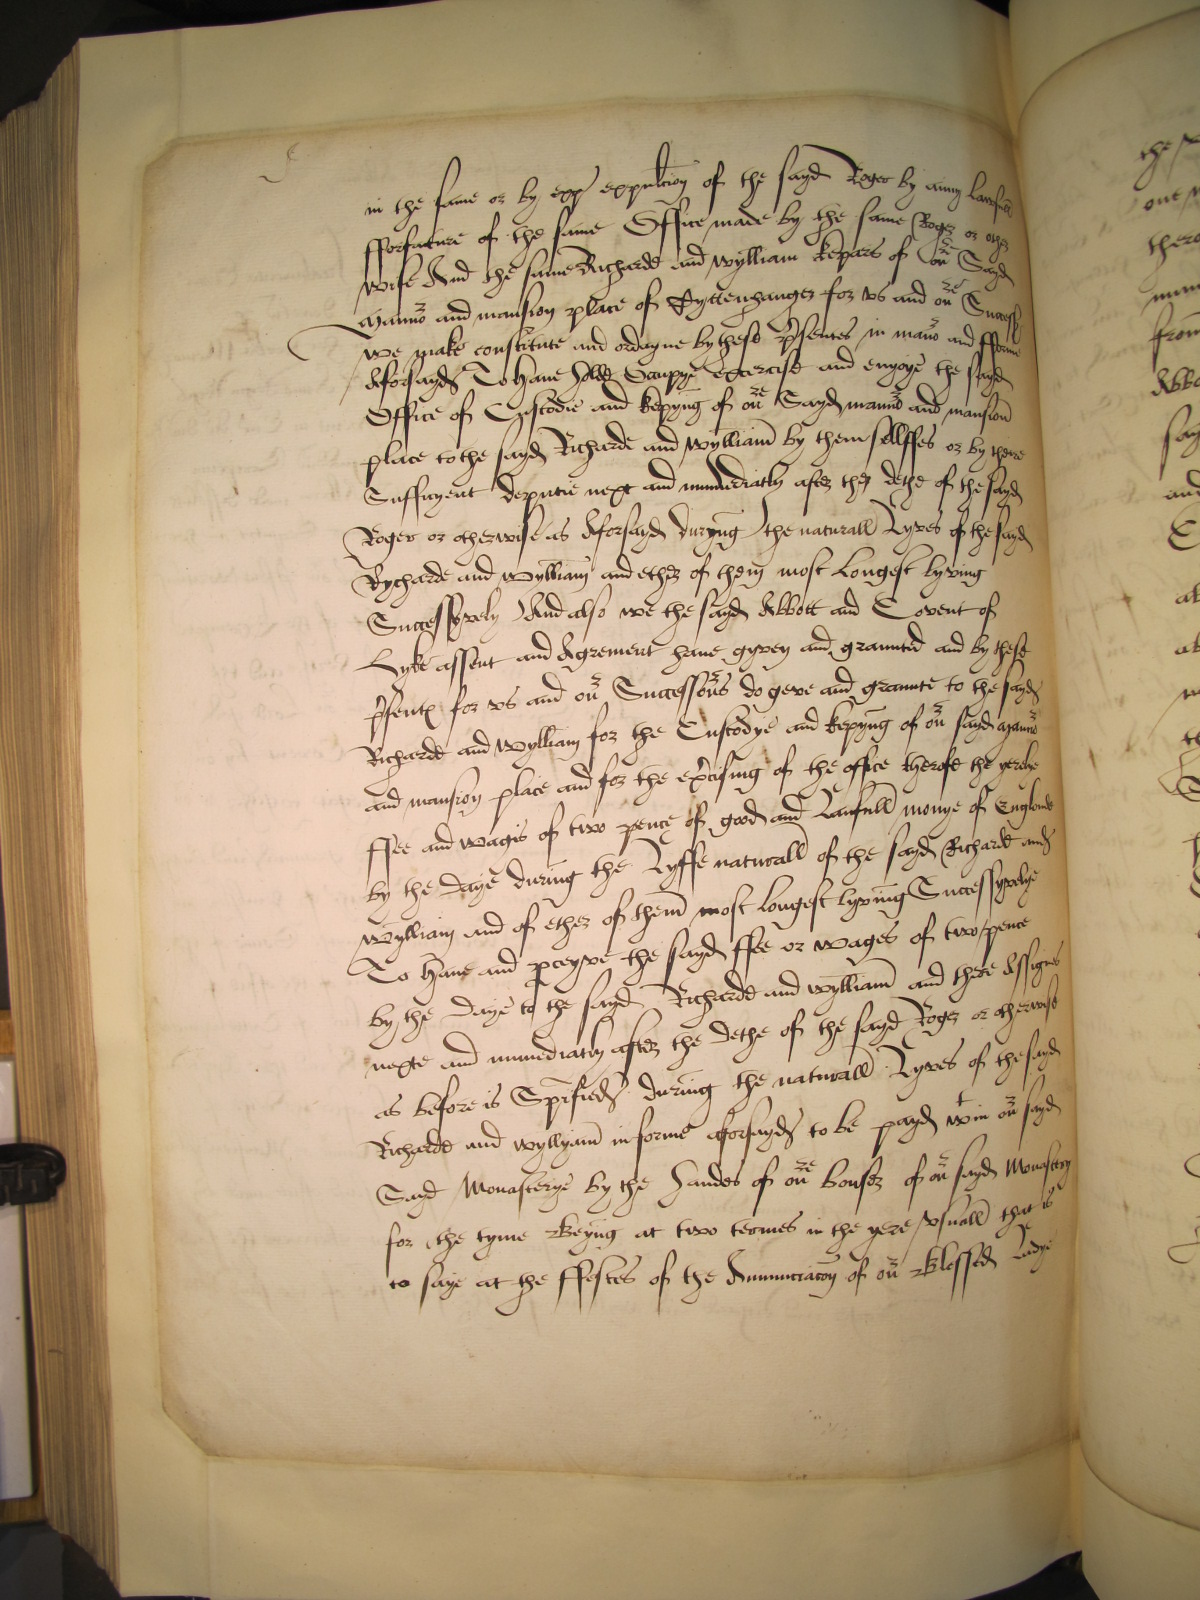 in the same or by exp expulcion of the sayd Roger by anny Lawfull
fforfature of the same Office made by the same Roger or other
wise And the same Richarde and Wylliam kepars of our Sayd
Mannor and mansion place of Tyttenhanger for vs and our Success
we make constitute and ordayne by these presentes in maner and fforme
Aforsayd To Haue Holde Occupye excercise and enyoye the sayd
Office of Custodie and kepyng of oure Sayd mannor and mansion
place to the sayd Richarde and Wylliam by them sellffes or by there
Suffycyent deputie next and immediatly after the dethe of the sayd
Roger or otherwise as Aforsayd duryng the naturall Lyves of the sayd
Rycharde and Wylliam and ether of them most Longest lyving
Successyvely And also we the sayd Abbott and Covent of
Lyke assent and Agrement haue gyven and graunted and by these
present for vs and our Successours do geve and graunte to the sayd
Richarde and Wylliam for the Custodye and kepyng of our sayd Mannor
and mansion place and for the excersing of the office therofe the yerelye
ffee and wagis of two pence of good and Laufull monye of Englonde
by the daye during the Lyffe naturall of the sayd Richard and
Wylliam and of ether of them most longest lyving Successyvelye
To Haue and perceyve the sayd ffee or wages of two pence
by the daye to the sayd Richarde and Wylliam and there Assignes
nexte and immediatly after the dethe of the sayd Roger or otherwise
as before is Specified during the naturall Lyves of the sayd
Richarde and Wyllyam in forme aforsayd to be payd wtin our sayd
Sayd Monasterye by the Handes of oure bouser of our sayd Monastery
for the tyme Beyng at two termes in the yere vsuall that is
to saye at the ffestes of the Annunciacon of our Blessed Ladye